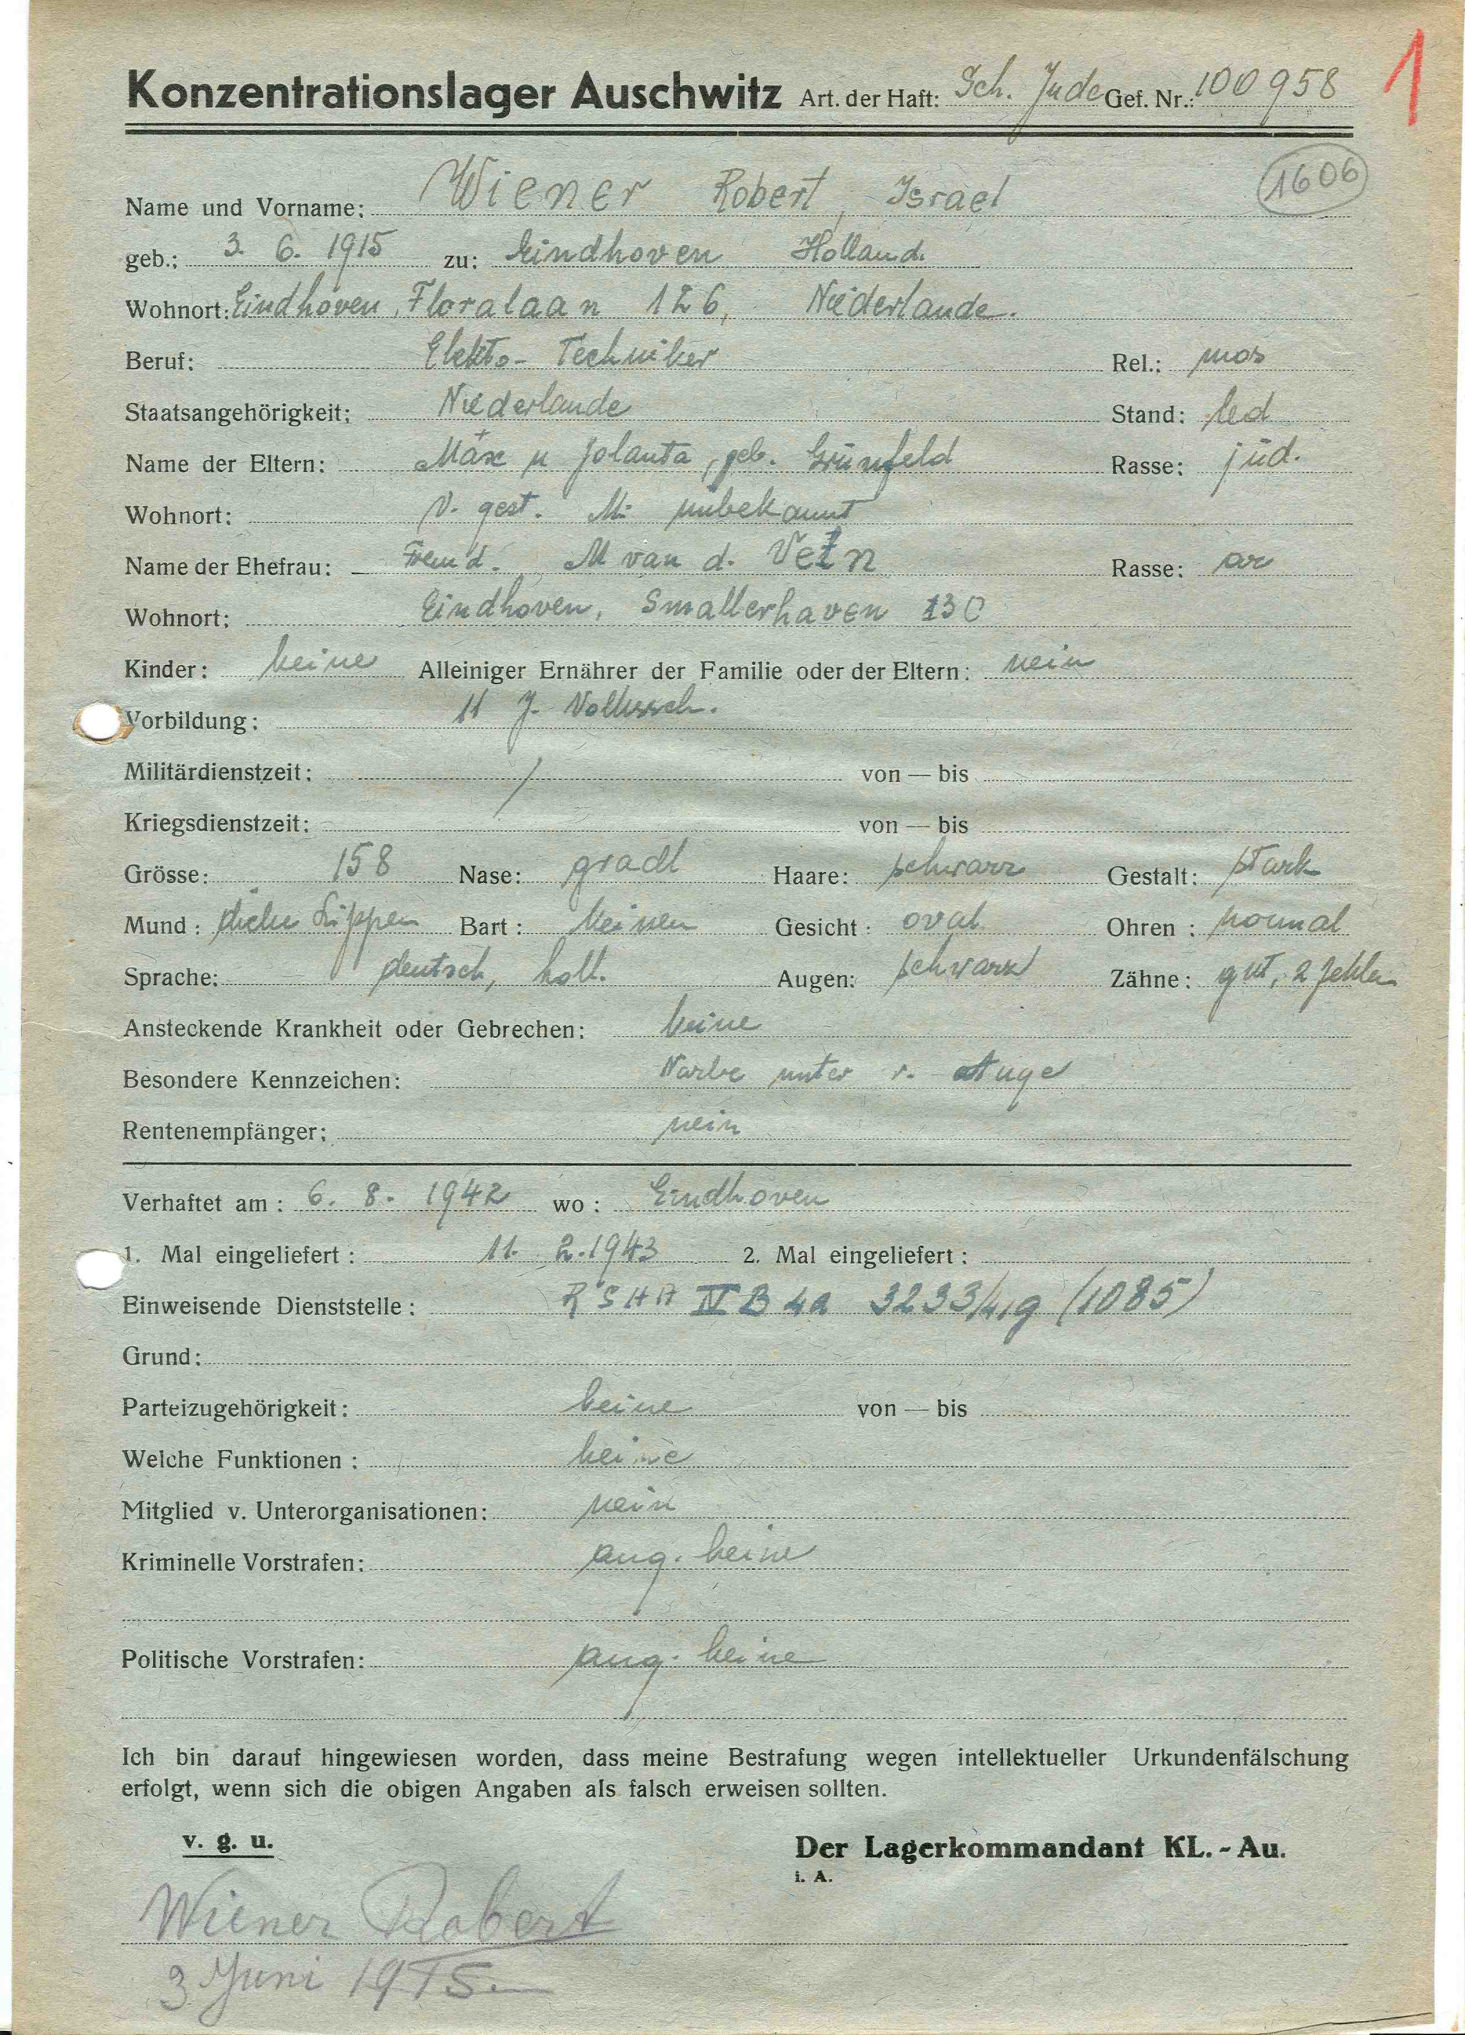 1
Konzentrationslager Auschwitz Art. der Haft: Sch. Jude Gef. Nr.: 100958
1606
Name und Vorname: Wiener Robert, Israel
geb.: 3. 6. 1915 zu: Eindhoven Holland.
Wohnort: Eindhoven, Floralaan 126, Niederlande.
Beruf: Elekto-Techniker Rel.: mos
Staatsangehörigkeit: Niederlande Stand: led
Name der Eltern: Max u Jolanta, geb. Grünfeld Rasse: jüd.
Wohnort: V. gest. M: unbekannt
Name der Ehefrau: Freund. M van d. Rasse: ar
Wohnort: Eindhoven, Smallerhaven 130
Kinder: keine Alleiniger Ernährer der Familie oder der Eltern: nein
Vorbildung: 11 J. Volkssch.
Militärdienstzeit: / von — bis
Kriegsdienstzeit: von — bis
Grösse: 158 Nase: gradl Haare: schwarz Gestalt: stark
Mund: dicke Lippen Bart: keinen Gesicht: oval Ohren: normal
Sprache: deutsch, holl. Augen: schwarz Zähne: gut, 2 fehlen
Ansteckende Krankheit oder Gebrechen: keine
Besondere Kennzeichen: Narbe unter r. Auge
Rentenempfänger: nein
Verhaftet am: 6. 8. 1942 wo: Eindhoven
1. Mal eingeliefert: 11. 2. 1943 2. Mal eingeliefert:
Einweisende Dienststelle: RSHA IV B 4a 3233/41g (1085)
Grund:
Parteizugehörigkeit: keine von — bis
Welche Funktionen: keine
Mitglied v. Unterorganisationen: nein
Kriminelle Vorstrafen: ang. keine
Politische Vorstrafen: ang. keine
Ich bin darauf hingewiesen worden, dass meine Bestrafung wegen intellektueller Urkundenfälschung
erfolgt, wenn sich die obigen Angaben als falsch erweisen sollten.
v. g. u. Der Lagerkommandant KL.-Au.
i. A.
Wiener Robert
3 Juni 1915